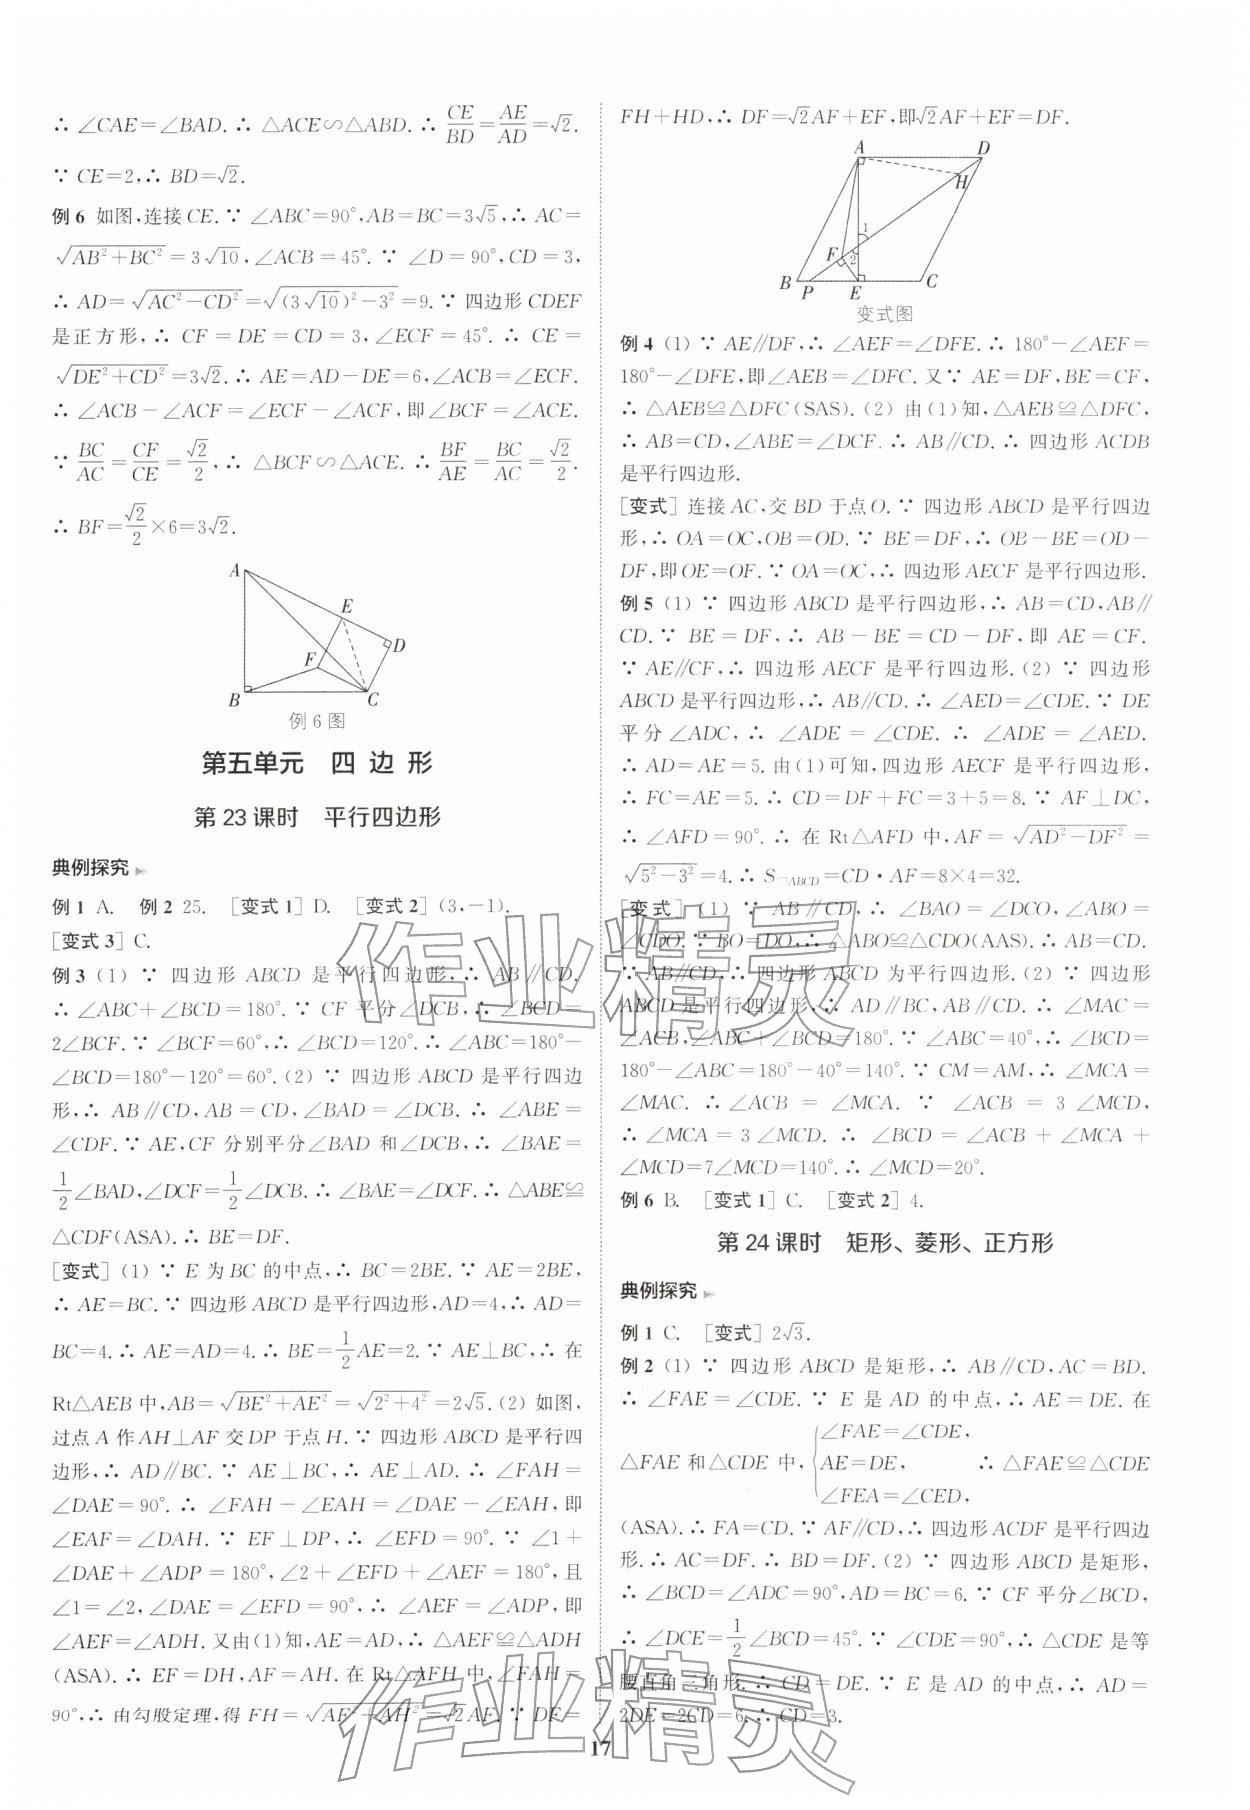 ∴ ∠CAE=∠BAD.∴ △ACE∽△ABD.∴ CE/BD=AE/AD=√2.
∵ CE=2,∴ BD=√2.
例6 如图,连接CE.∵ ∠ABC=90°,AB=BC=3√5,∴ AC=
√(AB²+BC²)=3√10,∠ACB=45°.∵ ∠D=90°,CD=3,
∴ AD=√(AC²-CD²)=√((3√10)²-3²)=9.∵ 四边形CDEF
是正方形,∴ CF=DE=CD=3,∠ECF=45°.∴ CE=
√(DE²+CD²)=3√2.∴ AE=AD-DE=6,∠ACB=∠ECF.
∴ ∠ACB-∠ACF=∠ECF-∠ACF,即∠BCF=∠ACE.
∵ BC/AC=CF/CE=√2/2,∴ △BCF∽△ACE.∴ BF/AE=BC/AC=√2/2.
∴ BF=√2/2×6=3√2.
A
E
D
F
B
C
例6图
第五单元 四边形
第23课时 平行四边形
典例探究
例1 A. 例2 25. [变式1]D. [变式2](3,-1).
[变式3]C.
例3 (1) ∵ 四边形ABCD是平行四边形,∴ AB∥CD.
∴ ∠ABC+∠BCD=180°.∵ CF平分∠DCB,∴ ∠BCD=
2∠BCF.∵ ∠BCF=60°,∴ ∠BCD=120°.∴ ∠ABC=180°-
∠BCD=180°-120°=60°.(2) ∵ 四边形ABCD是平行四边
形,∴ AB∥CD,AB=CD,∠BAD=∠DCB.∴ ∠ABE=
∠CDF.∵ AE,CF分别平分∠BAD和∠DCB,∴ ∠BAE=
1/2∠BAD,∠DCF=1/2∠DCB.∴ ∠BAE=∠DCF.∴ △ABE≌
△CDF(ASA).∴ BE=DF.
[变式](1) ∵ E为BC的中点,∴ BC=2BE.∵ AE=2BE,
∴ AE=BC.∵ 四边形ABCD是平行四边形,AD=4,∴ AD=
BC=4.∴ AE=AD=4.∴ BE=1/2AE=2.∵ AE⊥BC,∴ 在
Rt△AEB中,AB=√(BE²+AE²)=√(2²+4²)=2√5.(2) 如图,
过点A作AH⊥AF交DP于点H.∵ 四边形ABCD是平行四
边形,∴ AD∥BC.∵ AE⊥BC,∴ AE⊥AD.∴ ∠FAH=
∠DAE=90°.∴ ∠FAH-∠EAH=∠DAE-∠EAH,即
∠EAF=∠DAH.∵ EF⊥DP,∴ ∠EFD=90°.∵ ∠1+
∠DAE+∠ADP=180°,∠2+∠EFD+∠AEF=180°,且
∠1=∠2,∠DAE=∠EFD=90°,∴ ∠AEF=∠ADP,即
∠AEF=∠ADH.又由(1)知,AE=AD,∴ △AEF≌△ADH
(ASA).∴ EF=DH,AF=AH.在Rt△AFH中,∠FAH=
90°,∴ 由勾股定理,得FH=√(AF²+AH²)=√2AF.∵ DF=
FH+HD,∴ DF=√2AF+EF,即√2AF+EF=DF.
A
D
H
1
F
2
B
P
E
C
变式图
例4 (1) ∵ AE∥DF,∴ ∠AEF=∠DFE.∴ 180°-∠AEF=
180°-∠DFE,即∠AEB=∠DFC.又∵ AE=DF,BE=CF,
∴ △AEB≌△DFC(SAS).(2) 由(1)知,△AEB≌△DFC,
∴ AB=CD,∠ABE=∠DCF.∴ AB∥CD.∴ 四边形ACDB
是平行四边形.
[变式]连接AC,交BD于点O.∵ 四边形ABCD是平行四边
形,∴ OA=OC,OB=OD.∵ BE=DF,∴ OB-BE=OD-
DF,即OE=OF.∵ OA=OC,∴ 四边形AECF是平行四边形.
例5 (1) ∵ 四边形ABCD是平行四边形,∴ AB=CD,AB∥
CD.∵ BE=DF,∴ AB-BE=CD-DF,即AE=CF.
∵ AE∥CF,∴ 四边形AECF是平行四边形.(2) ∵ 四边形
ABCD是平行四边形,∴ AB∥CD.∴ ∠AED=∠CDE.∵ DE
平分∠ADC,∴ ∠ADE=∠CDE.∴ ∠ADE=∠AED.
∴ AD=AE=5.由(1)可知,四边形AECF是平行四边形,
∴ FC=AE=5.∴ CD=DF+FC=3+5=8.∵ AF⊥DC,
∴ ∠AFD=90°.∴ 在Rt△AFD中,AF=√(AD²-DF²)=
√(5²-3²)=4.∴ S▱ABCD=CD·AF=8×4=32.
[变式](1) ∵ AB∥CD,∴ ∠BAO=∠DCO,∠ABO=
∠CDO.∵ BO=DO,∴ △ABO≌△CDO(AAS).∴ AB=CD.
∵ AB∥CD,∴ 四边形ABCD为平行四边形.(2) ∵ 四边形
ABCD是平行四边形,∴ AD∥BC,AB∥CD.∴ ∠MAC=
∠ACB,∠ABC+∠BCD=180°.∵ ∠ABC=40°,∴ ∠BCD=
180°-∠ABC=180°-40°=140°.∵ CM=AM,∴ ∠MCA=
∠MAC.∴ ∠ACB=∠MCA.∵ ∠ACB=3∠MCD,
∴ ∠MCA=3∠MCD.∴ ∠BCD=∠ACB+∠MCA+
∠MCD=7∠MCD=140°.∴ ∠MCD=20°.
例6 B. [变式1]C. [变式2]4.
第24课时 矩形、菱形、正方形
典例探究
例1 C. [变式]2√3.
例2 (1) ∵ 四边形ABCD是矩形,∴ AB∥CD,AC=BD.
∴ ∠FAE=∠CDE.∵ E是AD的中点,∴ AE=DE.在
△FAE和△CDE中,{∠FAE=∠CDE, AE=DE, ∠FEA=∠CED, ∴ △FAE≌△CDE
(ASA).∴ FA=CD.∵ AF∥CD,∴ 四边形ACDF是平行四边
形.∴ AC=DF.∴ BD=DF.(2) ∵ 四边形ABCD是矩形,
∴ ∠BCD=∠ADC=90°,AD=BC=6.∵ CF平分∠BCD,
∴ ∠DCE=1/2∠BCD=45°.∵ ∠CDE=90°,∴ △CDE是等
腰直角三角形.∴ CD=DE.∵ E是AD的中点,∴ AD=
2DE=2CD=6.∴ CD=3.
17
作业精灵
作业精灵